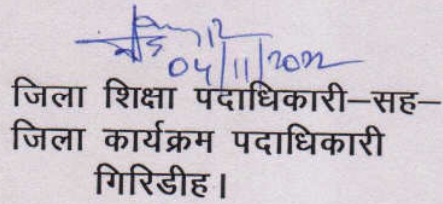 04/11/2022
जिला शिक्षा पदाधिकारी–सह–
जिला कार्यक्रम पदाधिकारी
गिरिडीह।